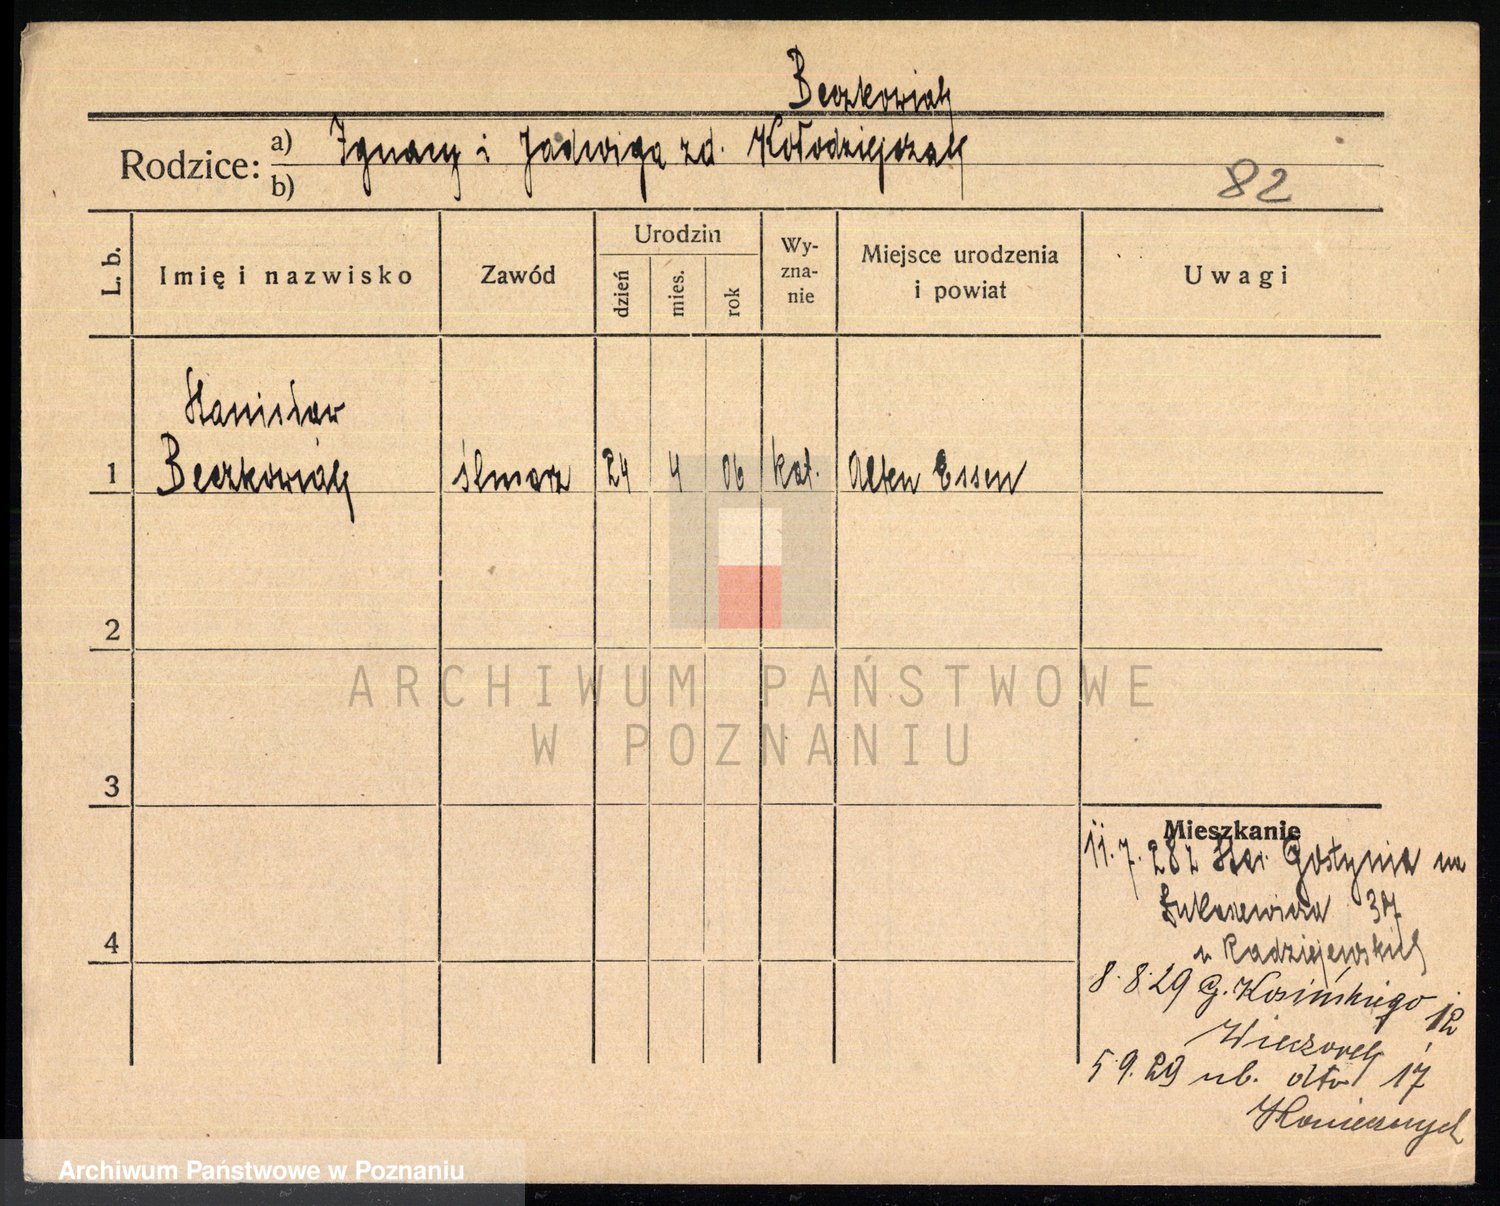 Beszkowiak
Rodzice: a) Ignacy i Jadwiga zd. Kołodziejczak
b)
82
L. b.
Imię i nazwisko
Zawód
Urodzin
dzień
mies.
rok
Wy-
zna-
nie
Miejsce urodzenia
i powiat
Uwagi
Stanisław
1 Beszkowiak ślusarz 24 4 06 kat. Alten Essen
2
3
4
ARCHIWUM PAŃSTWOWE
W POZNANIU
Mieszkanie
11.7.28 z Gostynia na
Łukaszewicza 37
Radziejewskich
8.8.29 G. Kosińskiego 12
Wieczorek
5.9.29 ub. dtto 17
Koniecznych
Archiwum Państwowe w Poznaniu